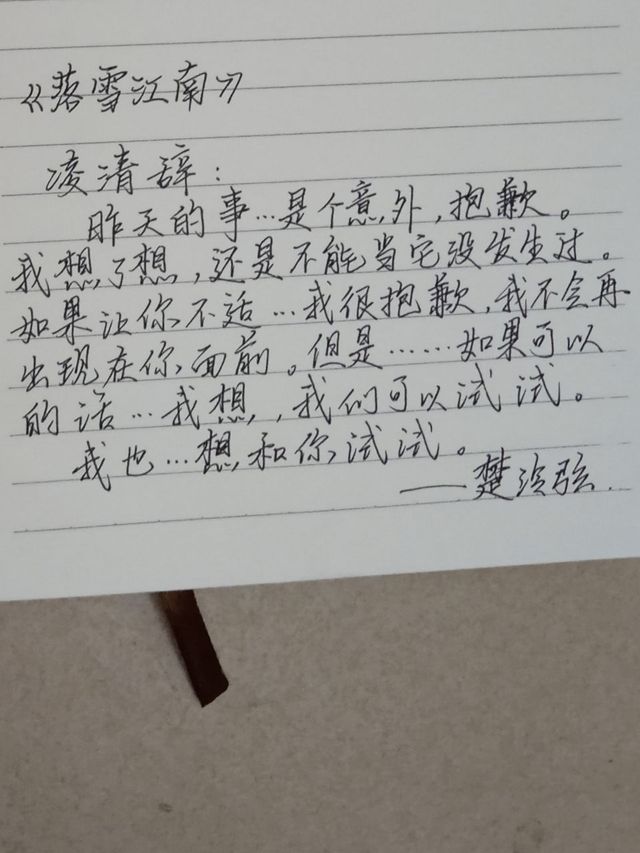 《落雪江南》
凌清辞：
昨天的事…是个意外，抱歉。
我想了想，还是不能当它没发生过。
如果让你不适…我很抱歉，我不会再
出现在你面前。但是……如果可以
的话…我想，我们可以试试。
我也…想和你试试。
——楚泠弦.